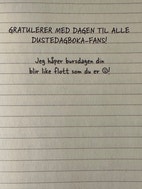 GRATULERER MED DAGEN TIL ALLE
DUSTEDAGBOKA-FANS!
Jeg håper bursdagen din
blir like flott som du er ☺!